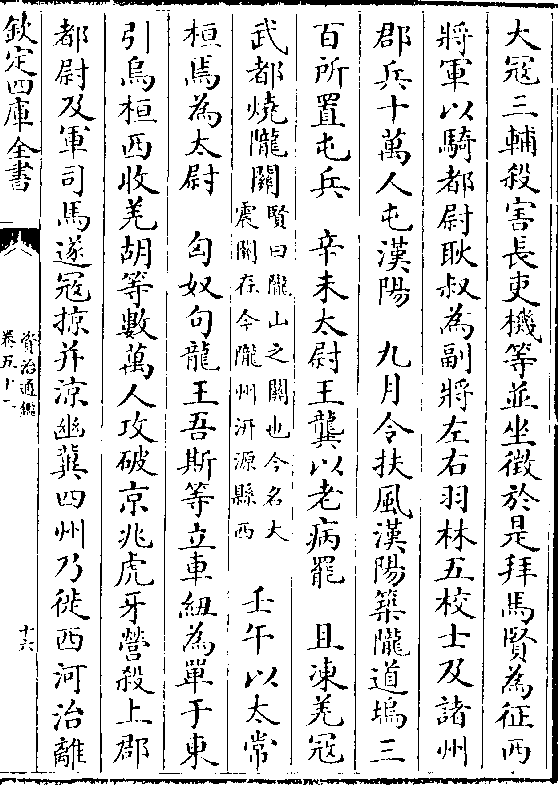 大寇三輔殺害長吏機等並坐徵於是拜馬賢為征西
將軍以騎都尉耿叔為副將左右羽林五校士及諸州
郡兵十萬人屯漢陽　九月令扶風漢陽築隴道塢三
百所置屯兵　辛未太尉王龔以老病罷　且凍羌寇
武都燒隴關賢曰隴山之關也今名大震關在今隴州汧源縣西　壬午以太常
桓焉為太尉　匈奴句龍王吾斯等立車紐為單于東
引烏桓西收羌胡等數萬人攻破京兆虎牙營殺上郡
都尉及軍司馬遂寇掠并涼幽冀四州乃徙西河治離
欽定四庫全書
資治通鑑
卷五十二
十六